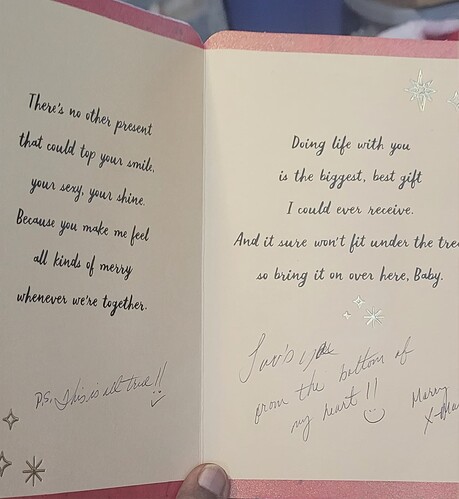 There's no other present
that could top your smile,
your sexy, your shine.
Because you make me feel
all kinds of merry
whenever we're together.
P.S. This is all true!!
Doing life with you
is the biggest, best gift
I could ever receive.
And it sure won't fit under the tree
so bring it on over here, Baby.
from the bottom of
my heart!!
Merry